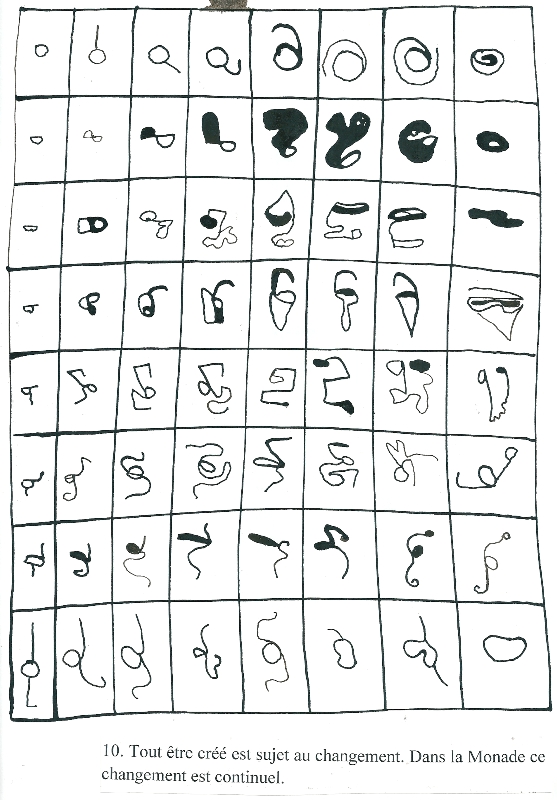 10. Tout être créé est sujet au changement. Dans la Monade ce
changement est continuel.